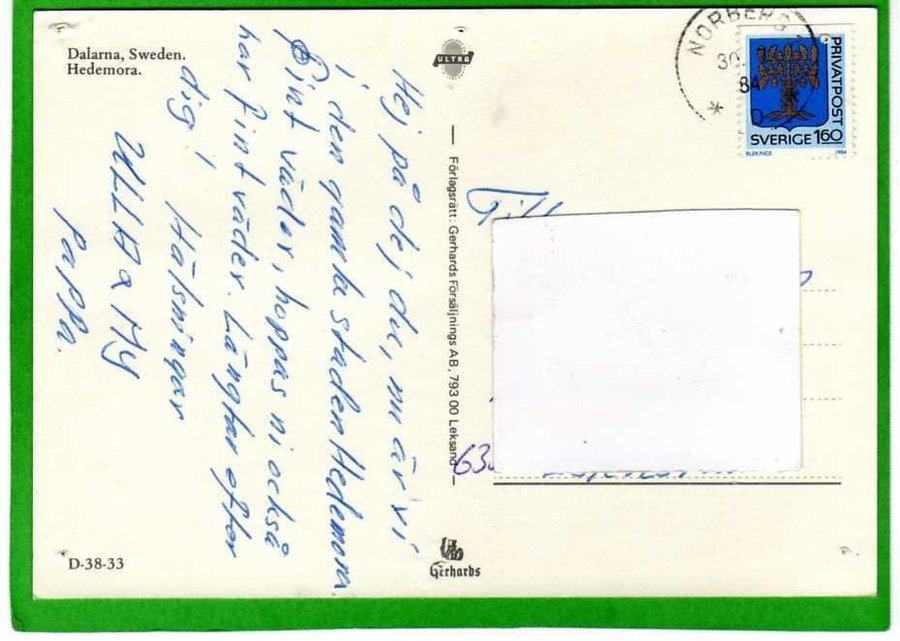 Dalarna, Sweden.
Hedemora.
ULTRA
Hej på dej du, nu är vi
i den gamla staden Hedemora.
Fint väder, hoppas ni också
har fint väder. Längtar efter
dig! Hälsningar
ULLA & MY
PAPPA.
Förlagsrätt: Gerhards Försäljnings AB, 793 00 Leksand
NORBERG
30
84
PRIVATPOST
SVERIGE 160
BLEKINGE 1984
Till
63
D-38-33
Gerhards